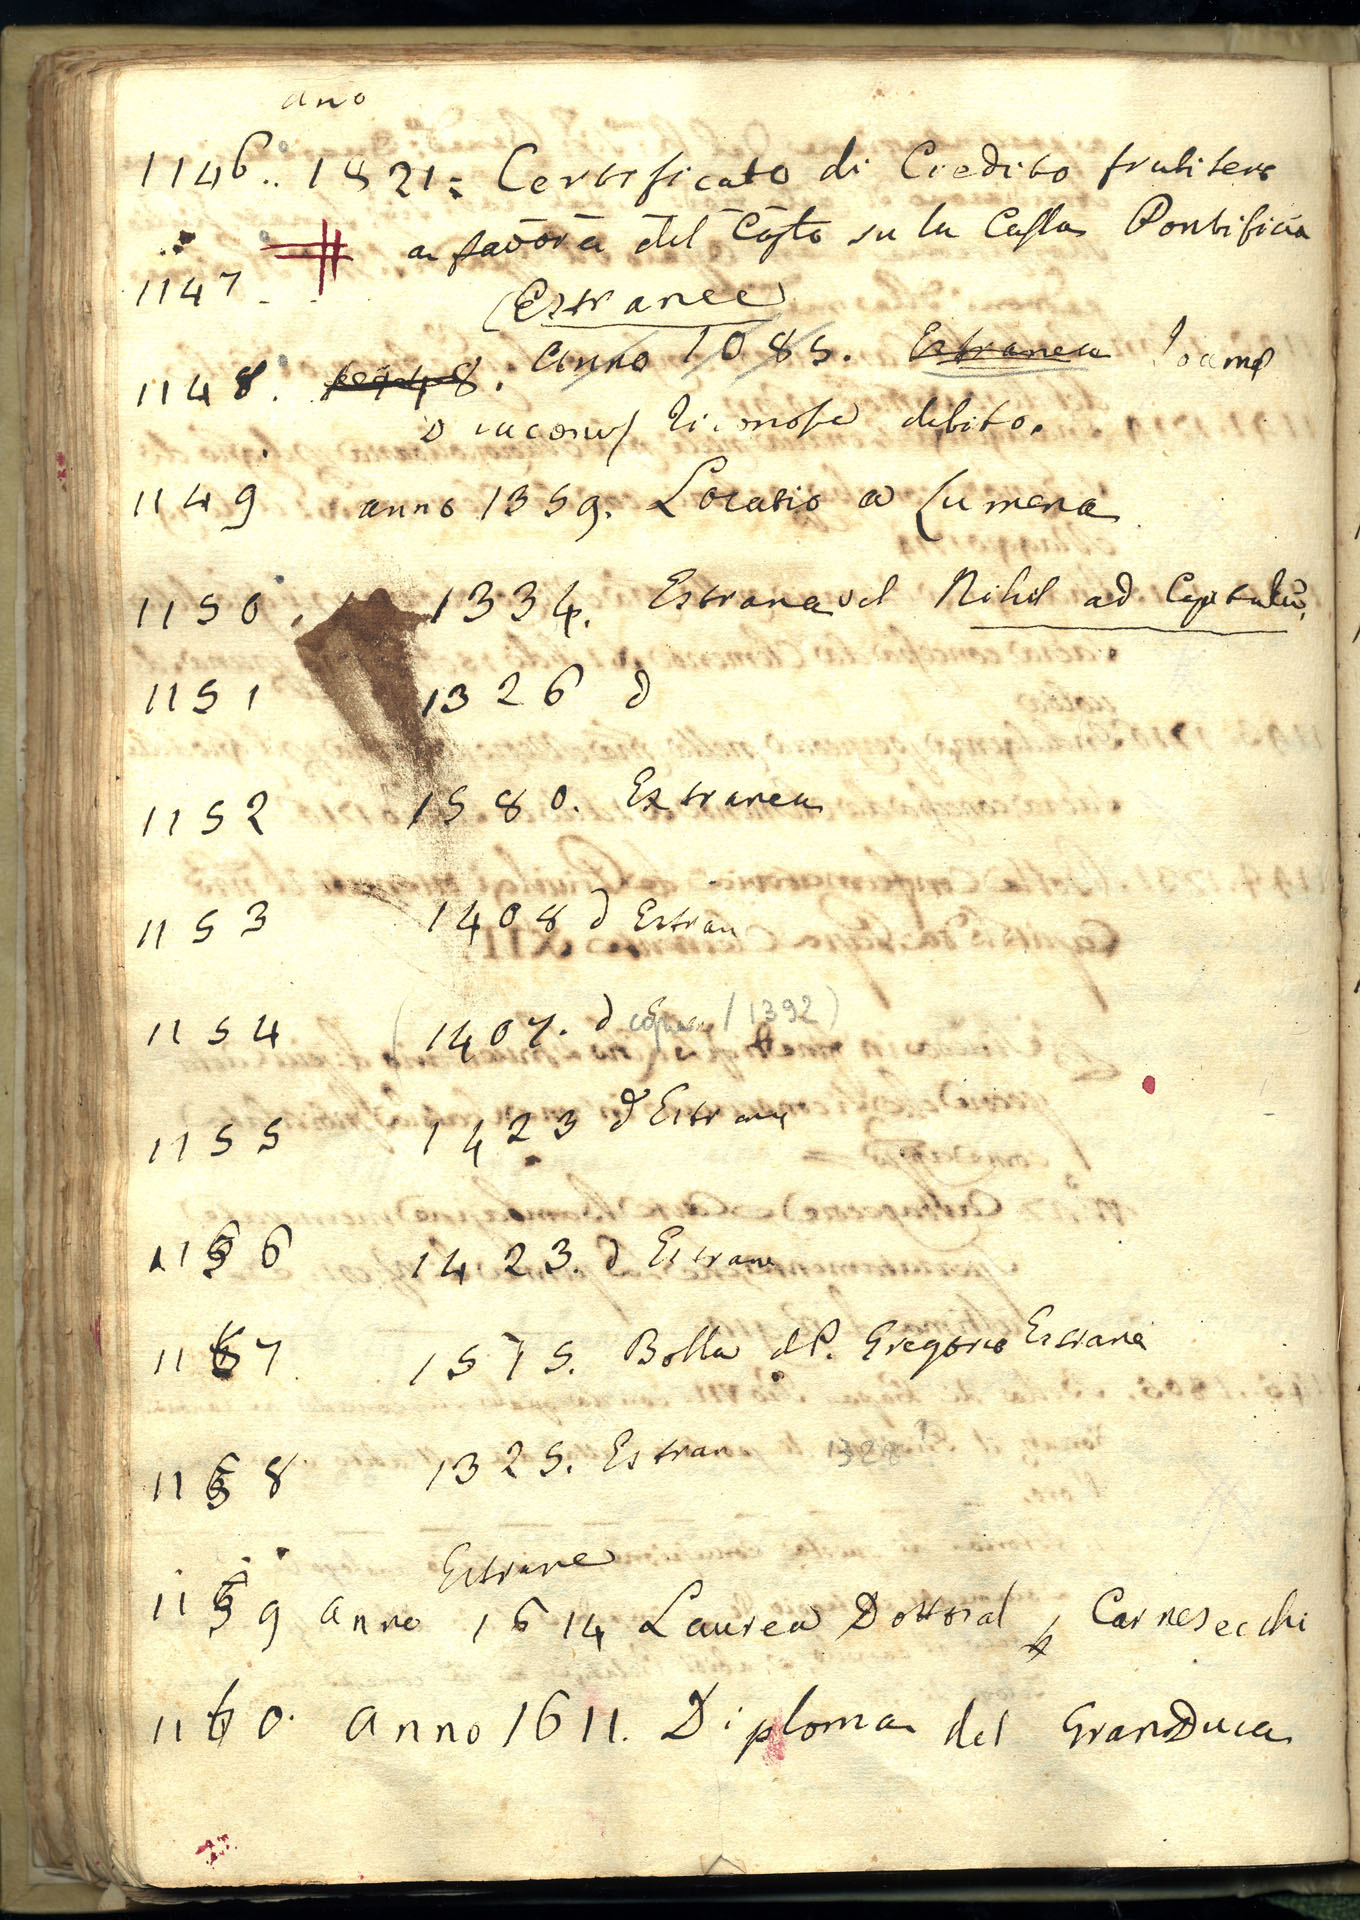 ano
1146.. 1821: Certificato di Credito frutifero
a favore del Cap.to su la Cassa Pontificia
1147. Estranee
1148. Anno 1085. Estranea Joannes
Diaconus riconosce debito.
1149 anno 1359. Locatio a Lumera
1150. 1334. Estranea vel Nihil ad Capitulu
1151 1326 d
1152 1580. Extranea
1153 1408 d Estran
1154 (1407. d copia / 1392)
1155 1423 d Estrane
1156 1423. d Estrane
1157 1575. Bolla d P. Gregorio Estranea
1158 1325. Estran 1328?
Estrane
1159 anno 1614 Laurea Dottoral Carnesecchi
1160. Anno 1611. Diploma del GranDuca